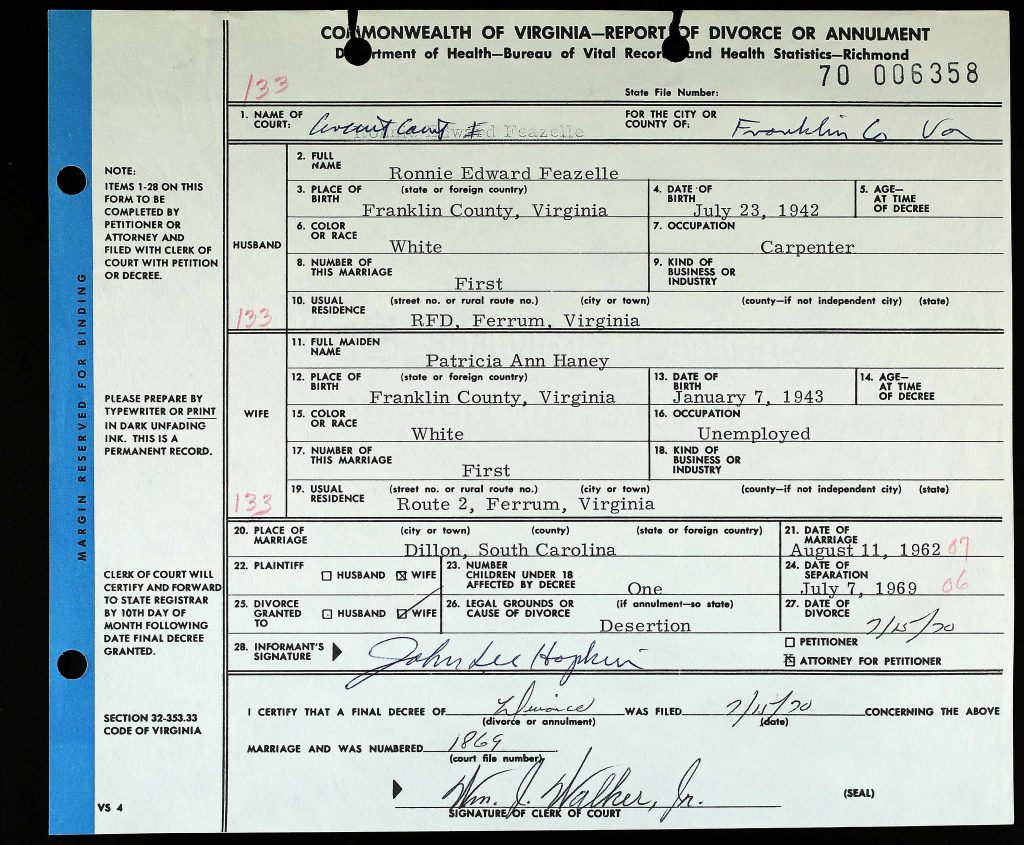 COMMONWEALTH OF VIRGINIA—REPORT OF DIVORCE OR ANNULMENT
Department of Health—Bureau of Vital Records and Health Statistics—Richmond
70 006358
133
State File Number:
1. NAME OF COURT: Circuit Court Ronnie Edward Feazelle FOR THE CITY OR COUNTY OF: Franklin Co Va
NOTE:
ITEMS 1-28 ON THIS
FORM TO BE
COMPLETED BY
PETITIONER OR
ATTORNEY AND
FILED WITH CLERK OF
COURT WITH PETITION
OR DECREE.
HUSBAND
2. FULL NAME Ronnie Edward Feazelle
3. PLACE OF BIRTH (state or foreign country) Franklin County, Virginia
4. DATE OF BIRTH July 23, 1942
5. AGE— AT TIME OF DECREE
6. COLOR OR RACE White
7. OCCUPATION Carpenter
8. NUMBER OF THIS MARRIAGE First
9. KIND OF BUSINESS OR INDUSTRY
10. USUAL RESIDENCE (street no. or rural route no.) (city or town) (county—if not independent city) (state)
RFD, Ferrum, Virginia
133
MARGIN RESERVED FOR BINDING
PLEASE PREPARE BY
TYPEWRITER OR PRINT
IN DARK UNFADING
INK. THIS IS A
PERMANENT RECORD.
WIFE
11. FULL MAIDEN NAME Patricia Ann Haney
12. PLACE OF BIRTH (state or foreign country) Franklin County, Virginia
13. DATE OF BIRTH January 7, 1943
14. AGE— AT TIME OF DECREE
15. COLOR OR RACE White
16. OCCUPATION Unemployed
17. NUMBER OF THIS MARRIAGE First
18. KIND OF BUSINESS OR INDUSTRY
19. USUAL RESIDENCE (street no. or rural route no.) (city or town) (county—if not independent city) (state)
Route 2, Ferrum, Virginia
133
20. PLACE OF MARRIAGE (city or town) (county) (state or foreign country)
Dillon, South Carolina
21. DATE OF MARRIAGE August 11, 1962 07
22. PLAINTIFF ☐ HUSBAND ☒ WIFE
23. NUMBER CHILDREN UNDER 18 AFFECTED BY DECREE One
24. DATE OF SEPARATION July 7, 1969 06
25. DIVORCE GRANTED TO ☐ HUSBAND ☑ WIFE
26. LEGAL GROUNDS OR CAUSE OF DIVORCE (if annulment—so state) Desertion
27. DATE OF DIVORCE 7/15/70
CLERK OF COURT WILL
CERTIFY AND FORWARD
TO STATE REGISTRAR
BY 10TH DAY OF
MONTH FOLLOWING
DATE FINAL DECREE
GRANTED.
28. INFORMANT'S SIGNATURE John Lee Hopkin
☐ PETITIONER
☒ ATTORNEY FOR PETITIONER
SECTION 32-353.33
CODE OF VIRGINIA
I CERTIFY THAT A FINAL DECREE OF Divorce WAS FILED 7/15/70 CONCERNING THE ABOVE
(divorce or annulment) (date)
MARRIAGE AND WAS NUMBERED 1869
(court file number)
Wm. J. Walker, Jr. (SEAL)
SIGNATURE OF CLERK OF COURT
VS 4